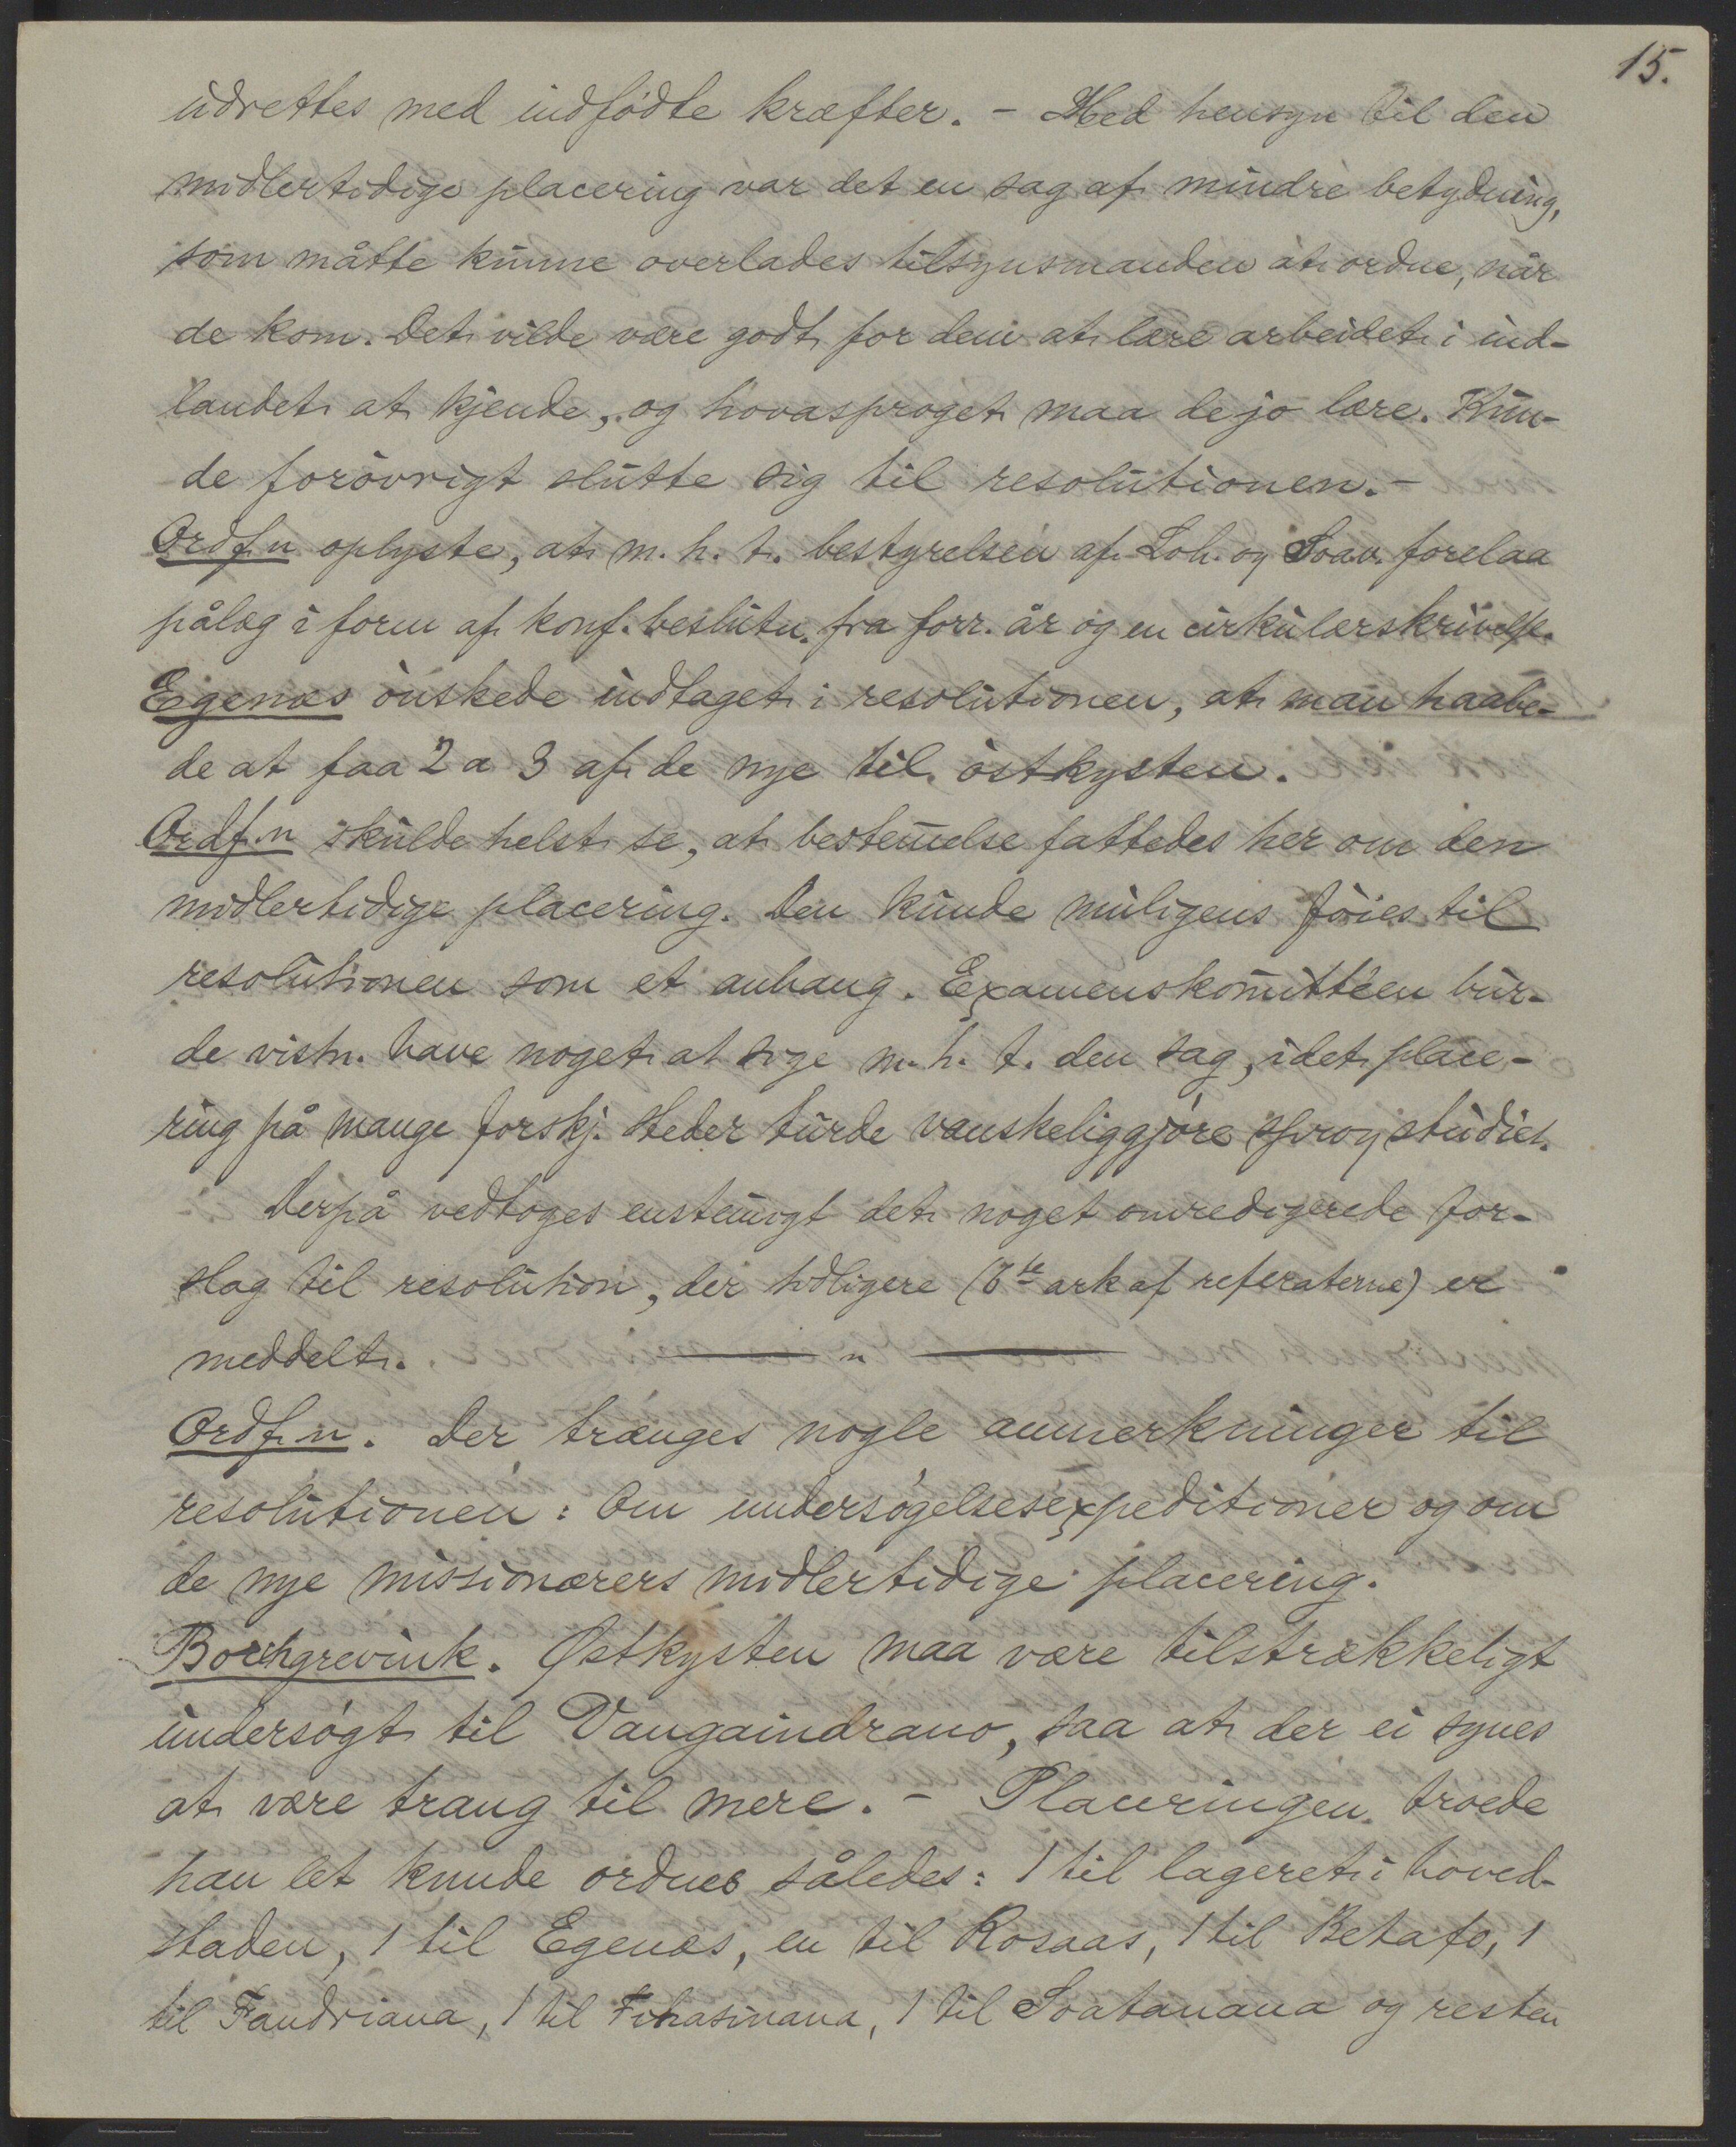 15.
udrettes med indfødte kræfter. – Med hensyn til den
midlertidige placering var det en sag af mindre betydning,
som måtte kunne overlades tilsynsmanden at ordne, når
de kom. Det vilde være godt for dem at lære arbeidet i ind-
landet at kjende, og hovasproget maa de jo lære. Kun-
de forøvrigt slutte sig til resolutionen. –
Ordf.n oplyste, at m. h. t. bestyrelsen af Loh. og Soav. forelaa
pålæg i form af konf. beslutn. fra forr. år og en cirkulærskrivelse.
Egenæs ønskede indtaget i resolutionen, at man haabe-
de at faa 2 a 3 af de nye til østkysten.
Ordf.n skulde helst se, at bestemelse fattedes her om den
midlertidige placering. Den kunde muligens føies til
resolutionen som et anhang. Examenskomitteen bur-
de vistn. have noget at sige m. h. t. den sag, idet place-
ring på mange forskj. steder turde vanskeliggjøre sprogstudiet.
Derpå vedtoges enstemigt det noget omredigerede for-
slag til resolution, der tidligere (6te ark af referaterne) er
meddelt. ——— " ———
Ordf.n. Der trænges nogle anmerkninger til
resolutionen: Om undersøgelsesexpeditioner og om
de nye missionærers midlertidige placering.
Borchgrevink. Østkysten maa være tilstrækkeligt
undersøgt til Vangaindrano, saa at der ei synes
at være trang til mere. – Placeringen troede
han let kunde ordnes således: 1 til lageret i hoved-
staden, 1 til Egenæs, en til Rosaas, 1 til Betafo, 1
til Fandriana, 1 til Fihasinana, 1 til Soatanana og resten